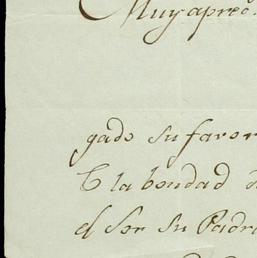 Muy aprec
gado su favor
la bondad d
el Sor Su Padr